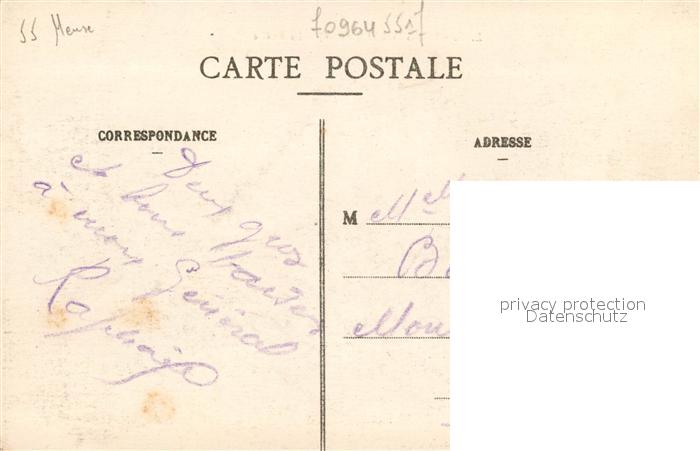 55 Meuse
70964 5517
CARTE POSTALE
CORRESPONDANCE
Deux gros
et bons baisers
à mon Général
Raphaël
ADRESSE
M Mell
Mou
privacy protection
Datenschutz